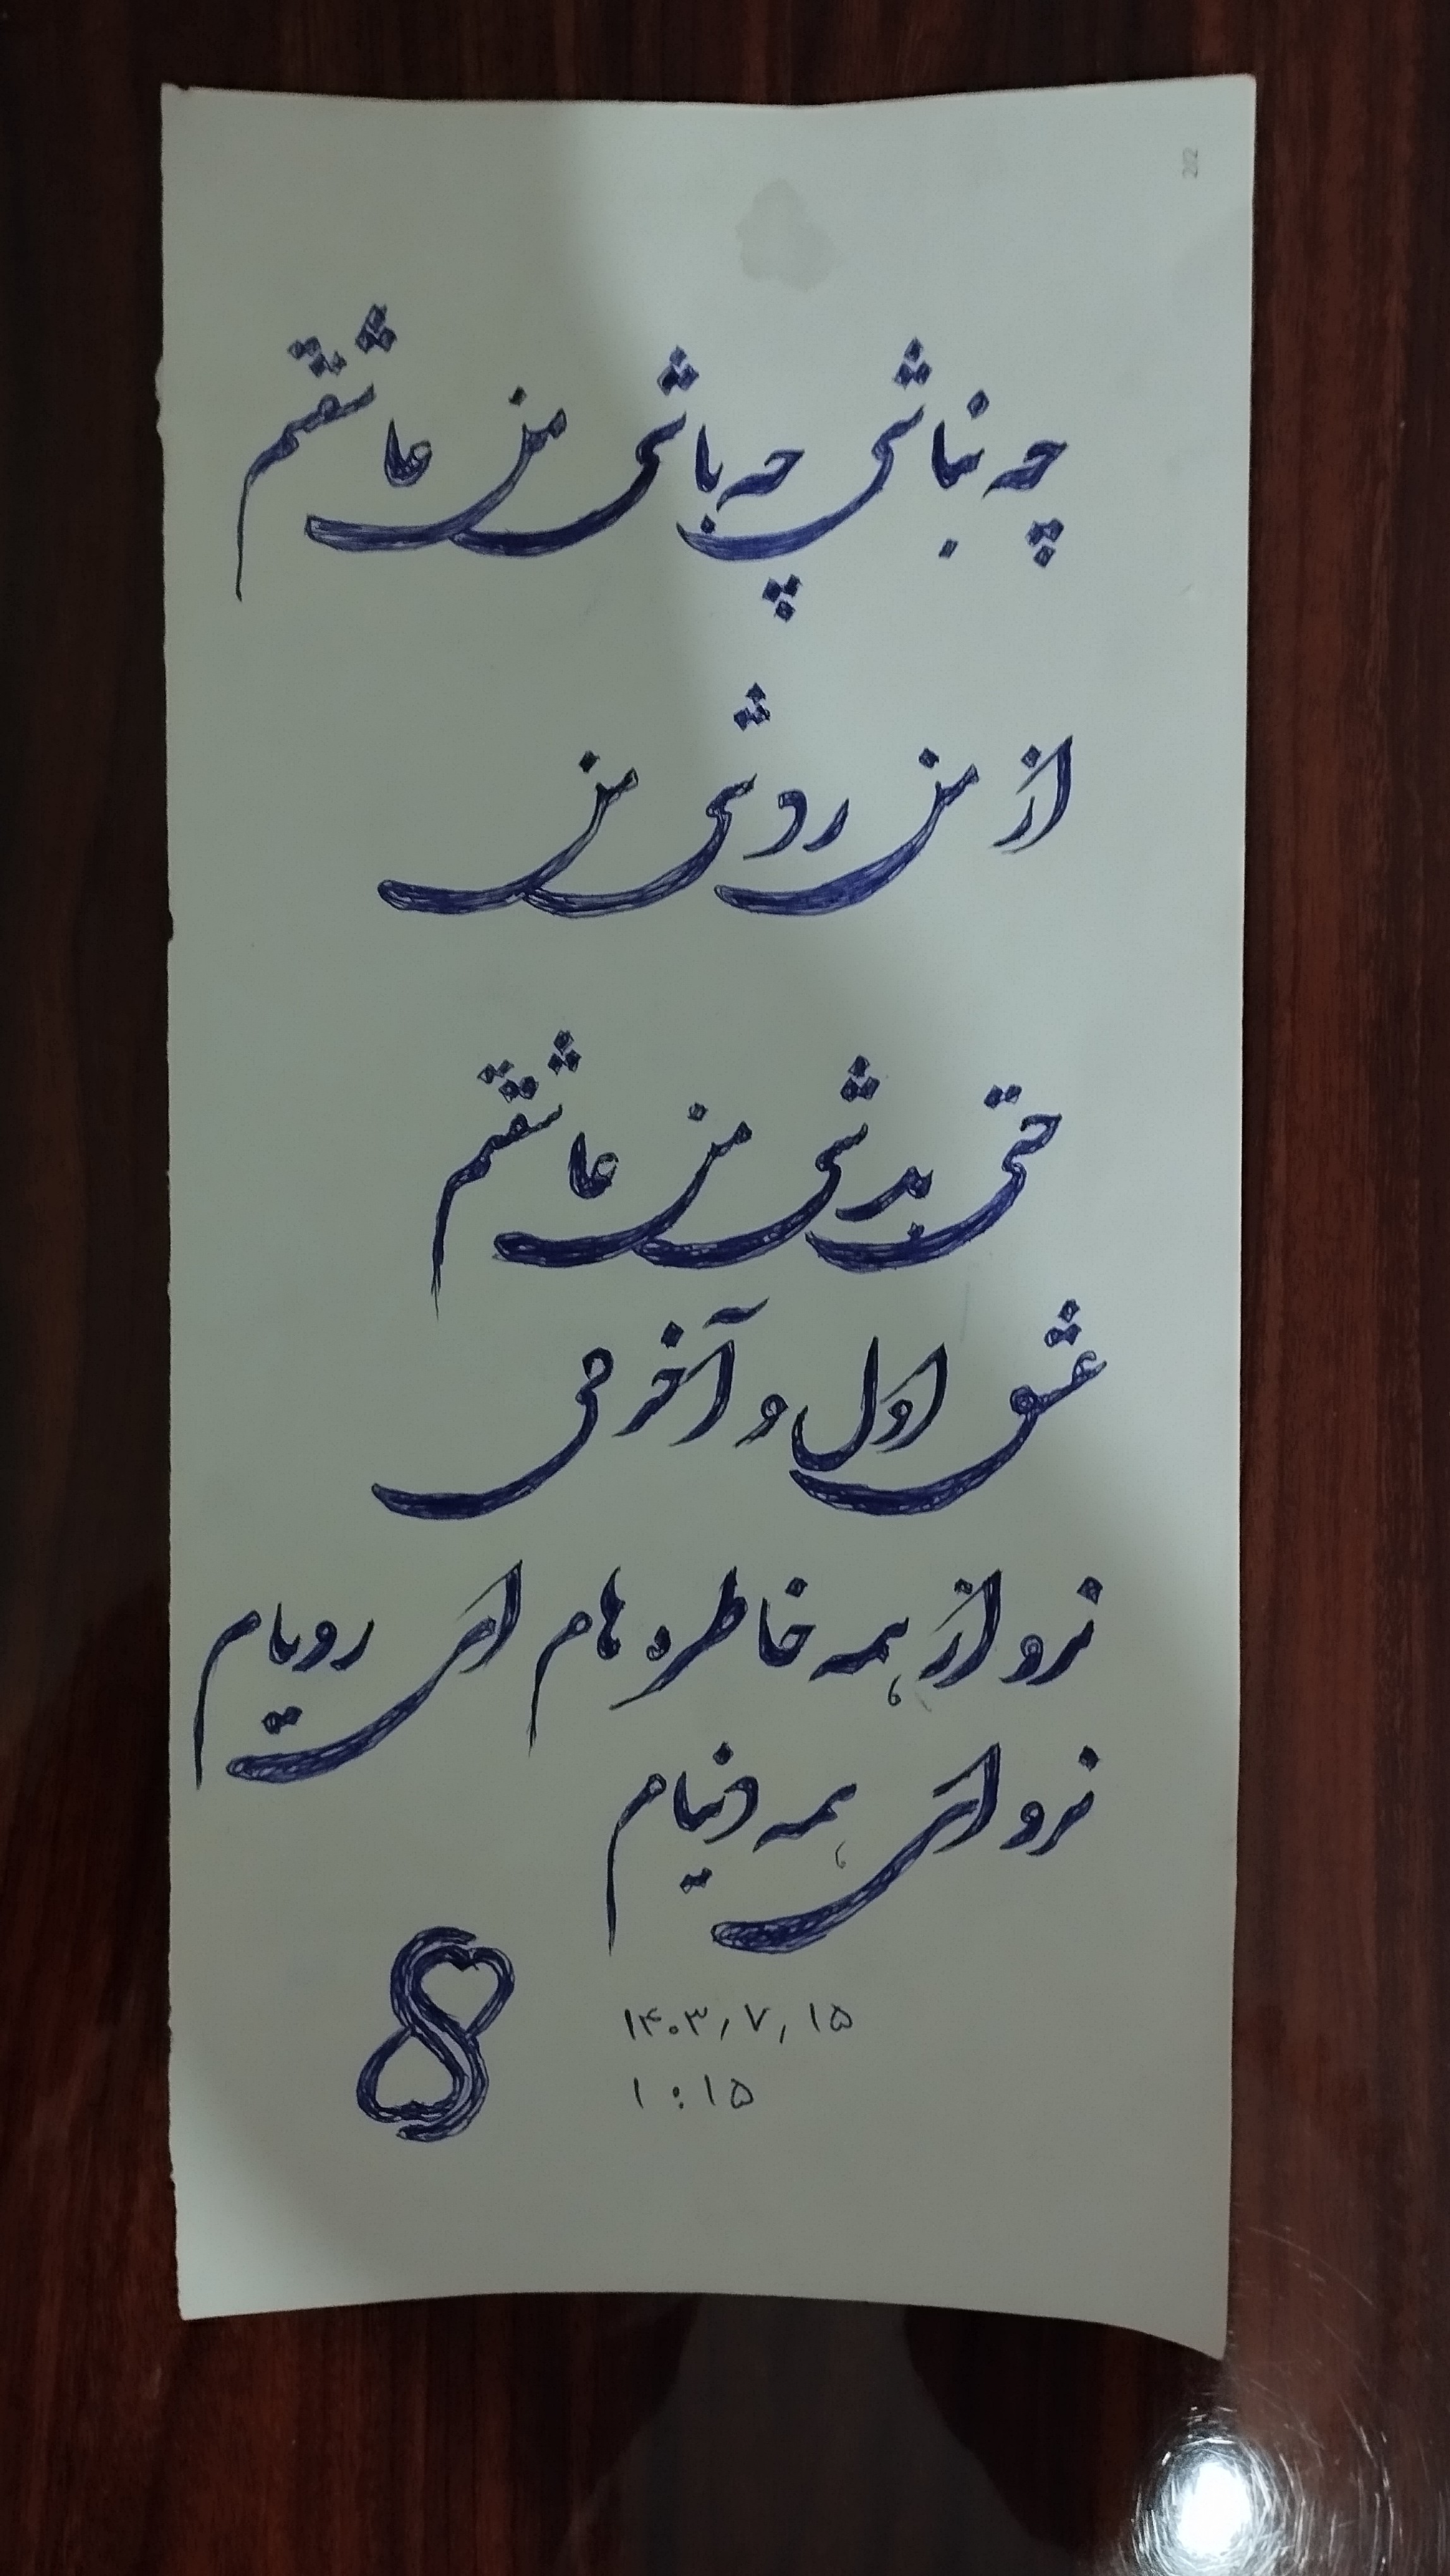 چه نباشی چه باشی من عاشقتم
از من رد شی من
حتی بد شی من عاشقتم
عشق اول و آخر می
نرو از همه خاطره هام ای رویام
نرو ای همه دنیام
۱۴۰۳٫۷٫۱۵
۱:۱۵